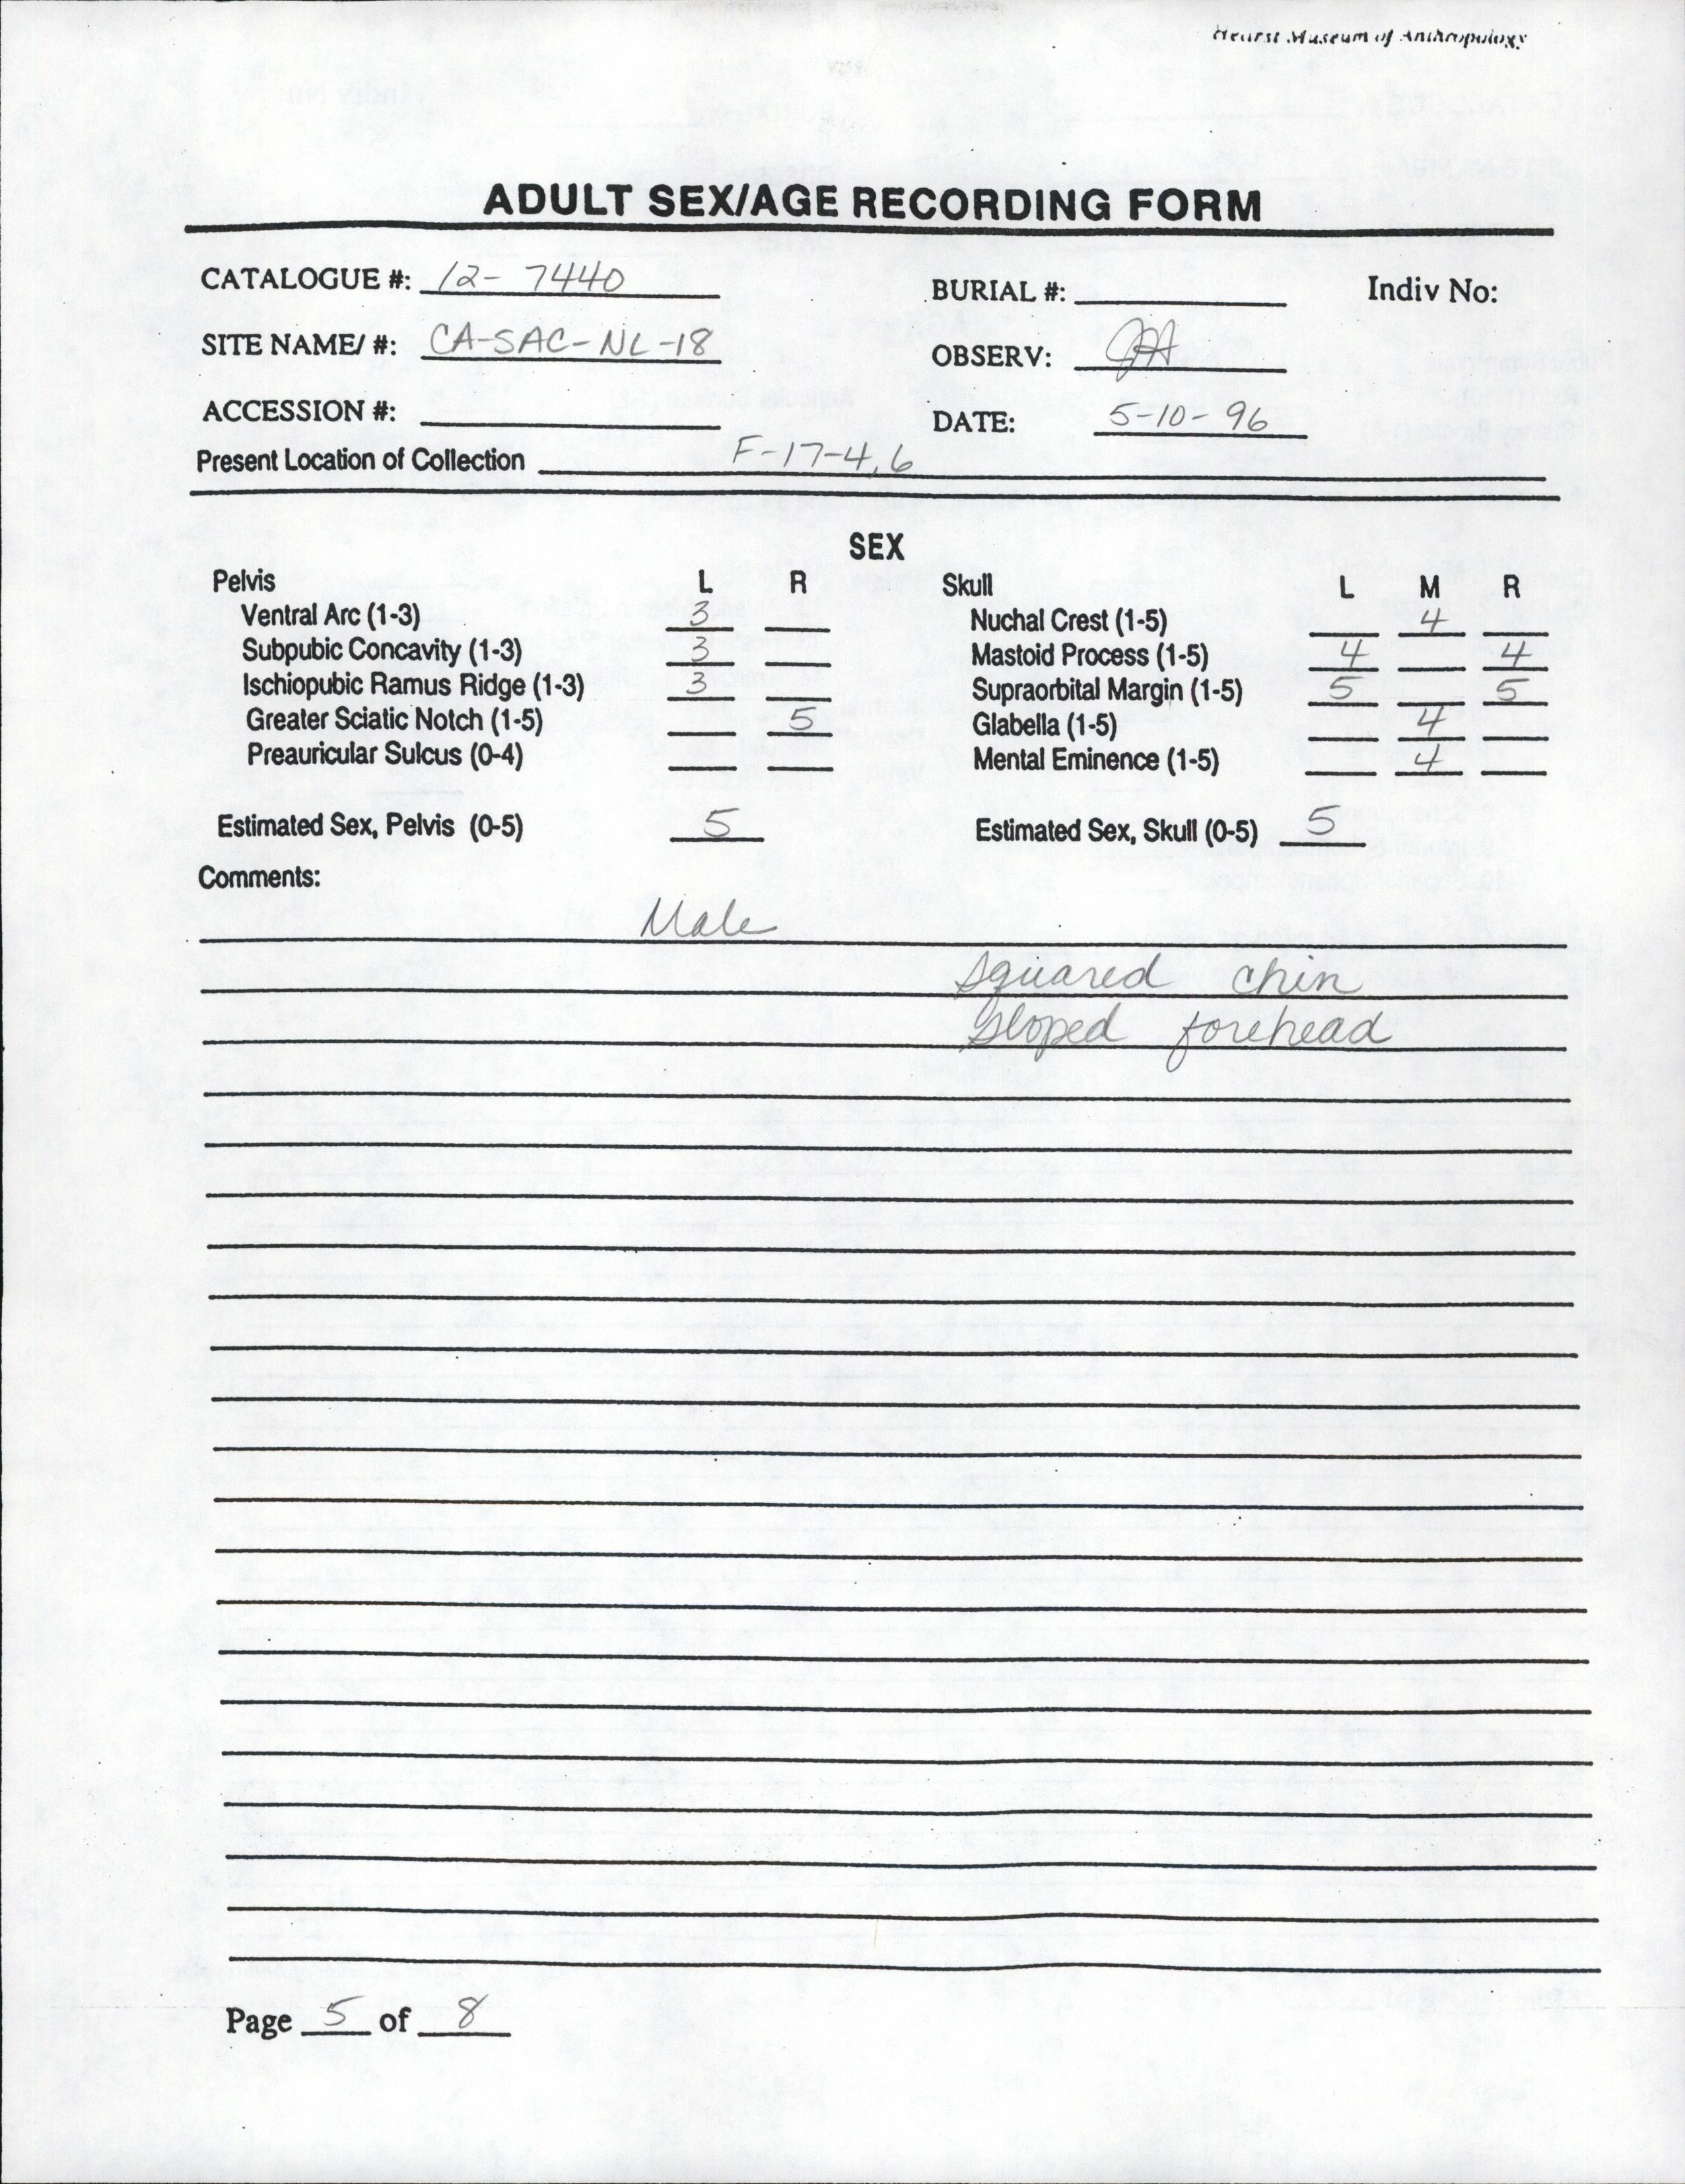 Hearst Museum of Anthropology
ADULT SEX/AGE RECORDING FORM
CATALOGUE #: 12-7440 BURIAL #: Indiv No:
SITE NAME/ #: CA-SAC-NL-18 OBSERV:
ACCESSION #: DATE: 5-10-96
Present Location of Collection F-17-4,6
SEX
Pelvis L R Skull L M R
Ventral Arc (1-3) 3 Nuchal Crest (1-5) 4
Subpubic Concavity (1-3) 3 Mastoid Process (1-5) 4 4
Ischiopubic Ramus Ridge (1-3) 3 Supraorbital Margin (1-5) 5 5
Greater Sciatic Notch (1-5) 5 Glabella (1-5) 4
Preauricular Sulcus (0-4) Mental Eminence (1-5) 4
Estimated Sex, Pelvis (0-5) 5 Estimated Sex, Skull (0-5) 5
Comments:
Male
squared chin
sloped forehead
Page 5 of 8